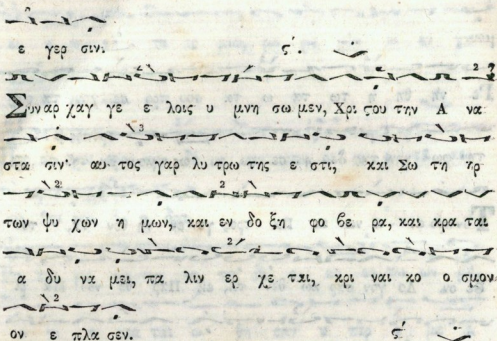 ε γερ σιν. ς΄.
Συναρ χαγ γε ε λοις υ μνη σω μεν, Χρι στου την Α να
στα σιν· αυ τος γαρ λυ τρω της ε στι, και Σω τη ηρ
των ψυ χων η μων, και εν δο ξη φο βε ρα, και κρα ται
α δυ να μει, πα λιν ερ χε ται, κρι ναι κο ο σμον
ον ε πλα σεν. ς΄